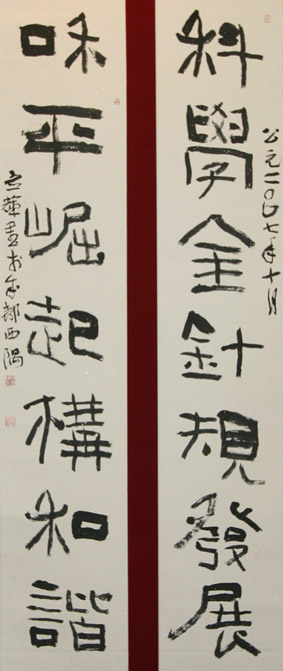 科學金針規發展
公元二〇〇七年十月
咊平崛起構和諧
书於成都西隅